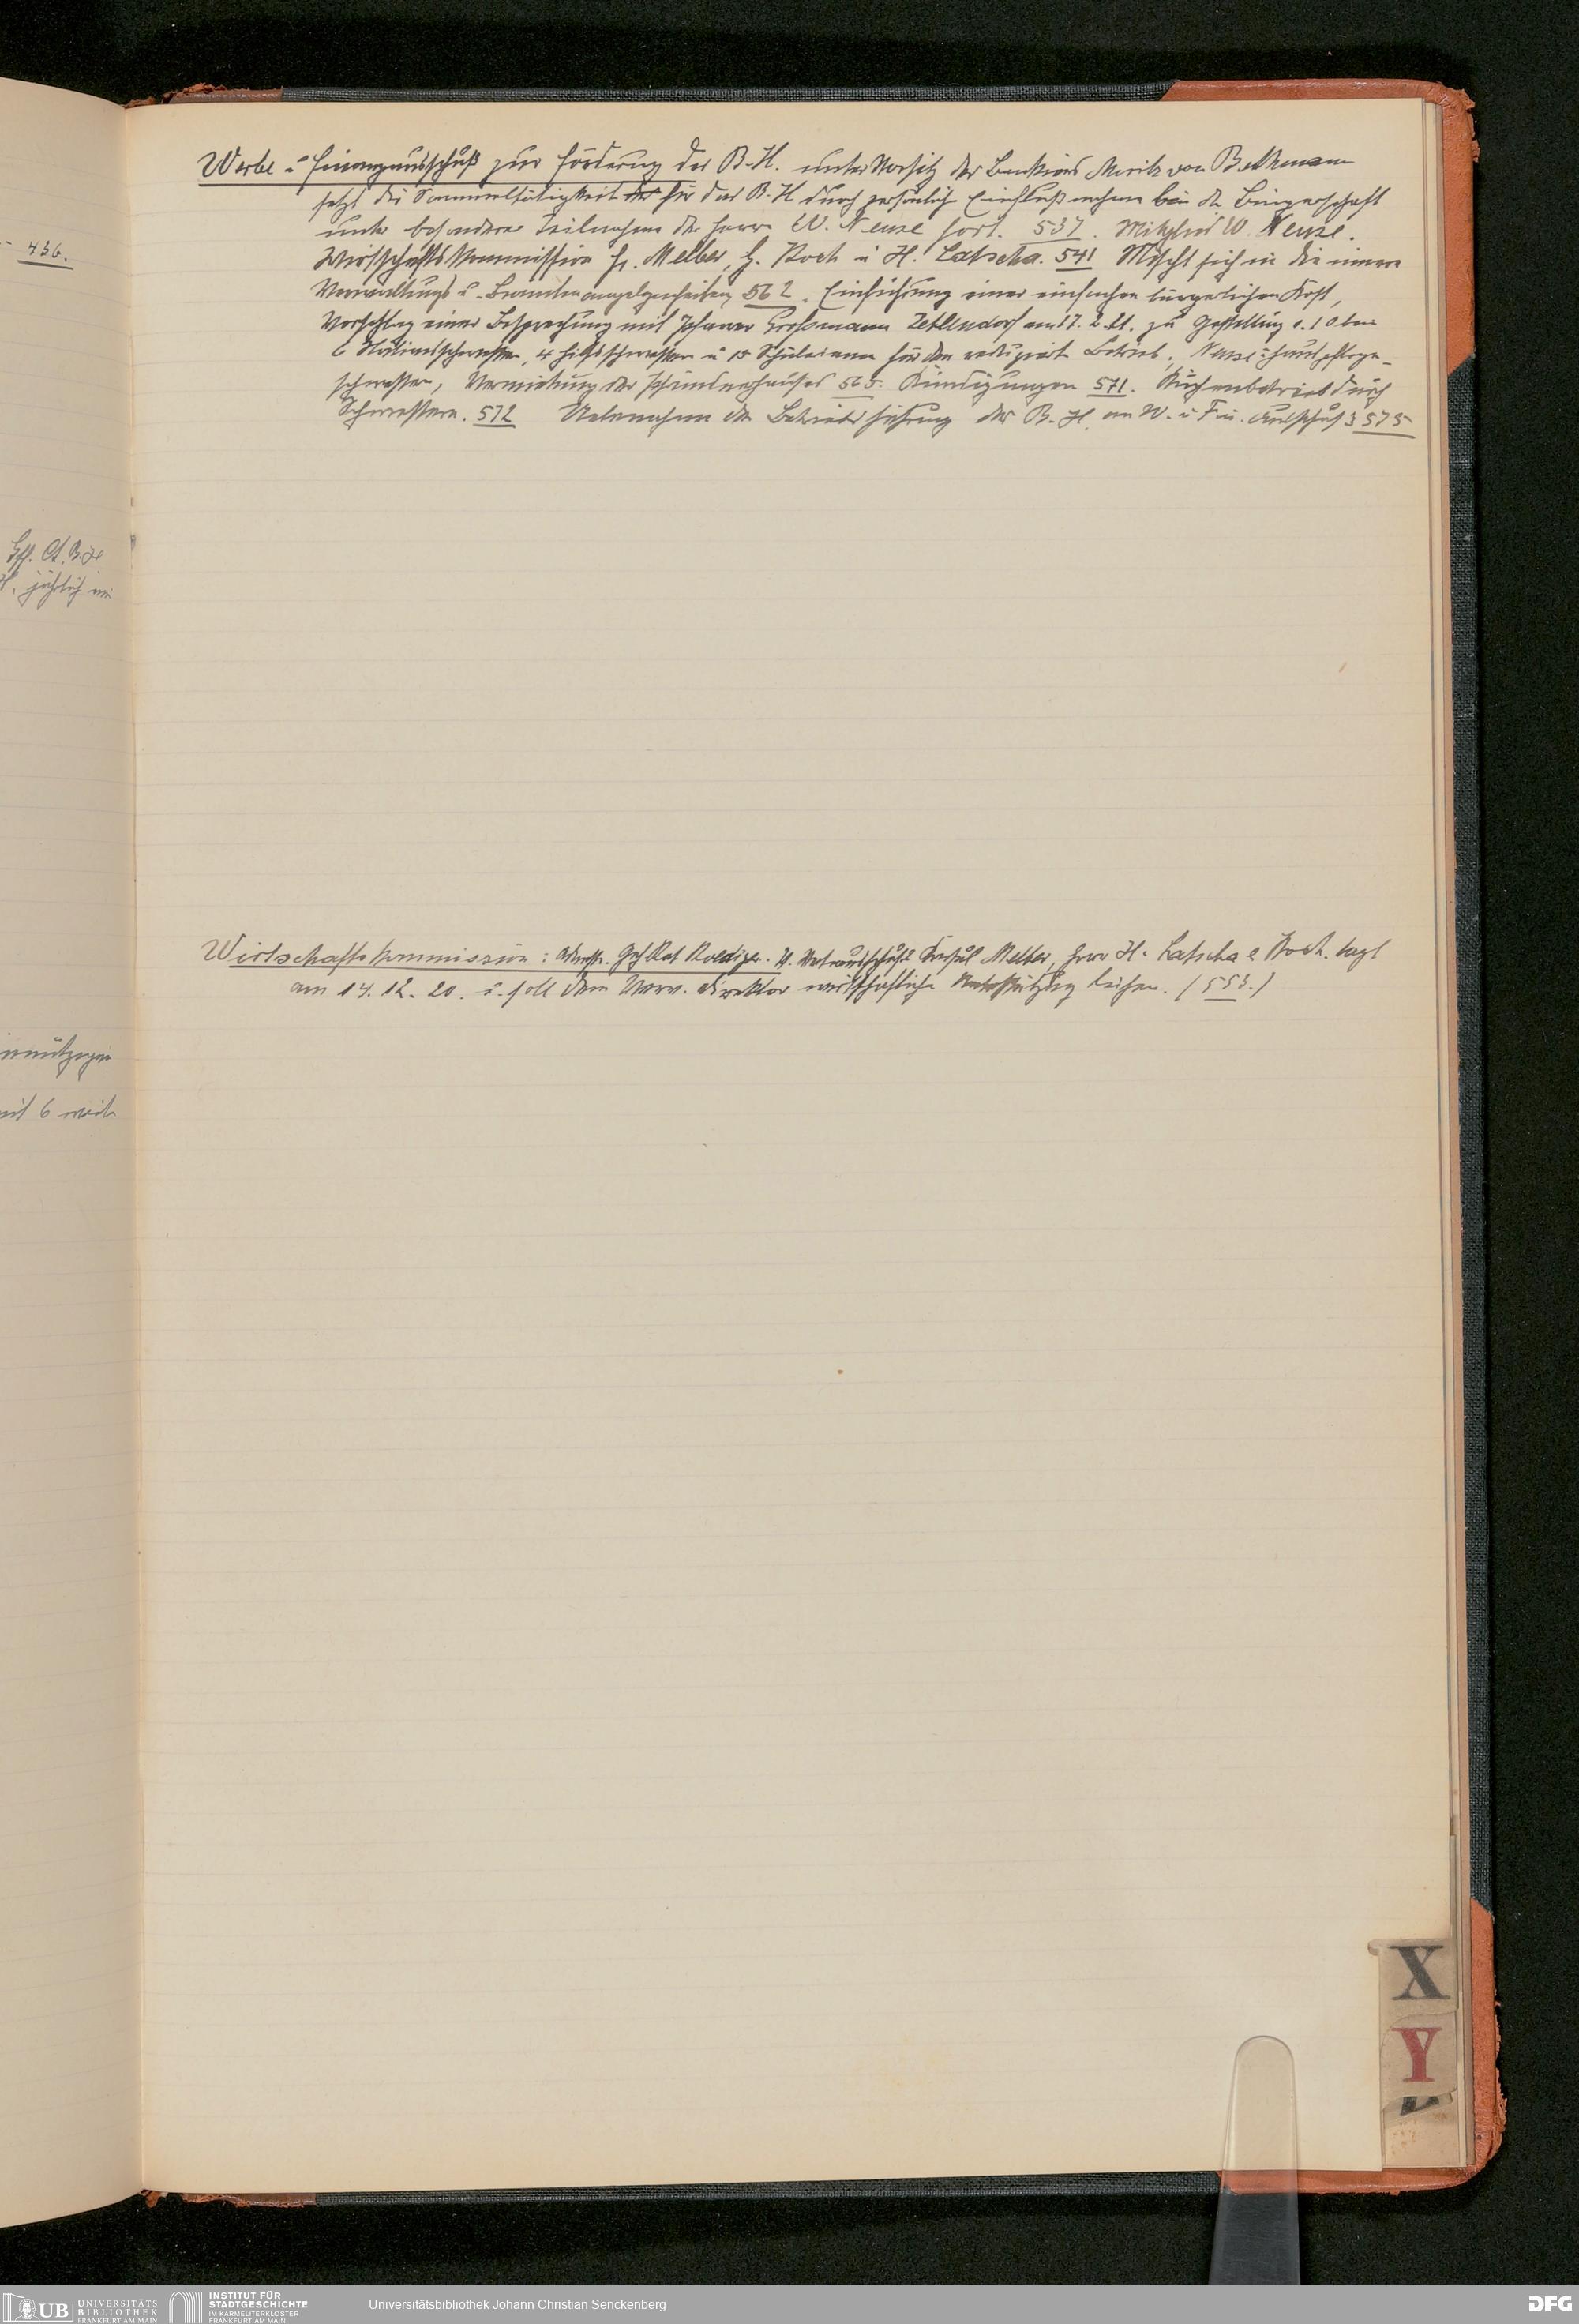 - 436.
Werbe- u. Finanzausschuß zur Förderung des B.-H. unter Vorsitz des Bankiers Moritz von Bethmann
setzt die Sammeltätigkeit für das B.-H. durch persönlich Einflußnahme bei der Bürgerschaft
unter besonderer Teilnahme der Herrn W. Neuse fort. 537. Mitglied W. Neuse.
Wirtschaftskommission Hr. Melber, H. Koch u. H. Latscha. 541 Mischt sich in die innere
Verwaltungs- u. Beamtenangelegenheiten 562. Einführung einer einfachen bürgerlichen Kost,
Vorschlag einer Besprechung mit Pfarrer Großmann Zehlendorf am 17. 2. 21. zu Gestellung v. 1 Ober
6 Stationsschwestern, 4 Hilfsschwestern u. 15 Schülerinnen für den reduziert. Betrieb,
schwestern, Vermietung des 565. Kündigungen 571. Küchenbetrieb durch
Schwestern. 572 Uebernahme der Betriebsführung des B.-H. an W.- u. Fin. Ausschuß 575
Hft. jährlich
Wirtschaftskommission: Geh Rat Roediger. Konsul Melber, Herr H. Latscha & Koch. tagt
am 14. 12. 20. u. soll dem Verw. Direktor wirtschaftliche Unterstützung leihen. (553.)
mit 6
X
Y
UB UNIVERSITÄTS
BIBLIOTHEK
FRANKFURT AM MAIN
INSTITUT FÜR
STADTGESCHICHTE
IM KARMELITERKLOSTER
FRANKFURT AM MAIN
Universitätsbibliothek Johann Christian Senckenberg
DFG